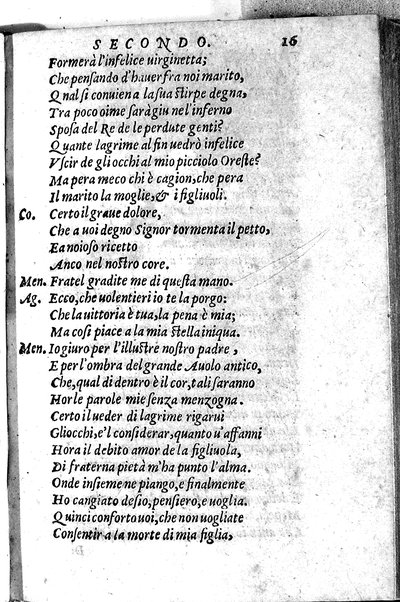 SECONDO. 16
Formerà l'infelice uirginetta;
Che pensando d'hauer fra noi marito,
Qual si conuiene a la sua stirpe degna,
Tra poco oime sarà giu nel'inferno
Sposa del Re de le perdute genti?
Quante lagrime al fin uedrò infelice
Vscir de gli occhi al mio picciolo Oreste?
Ma pera meco chi è cagion, che pera
Il marito la moglie, & i figliuoli.
Co. Certo il graue dolore,
Che a uoi degno Signor tormenta il petto,
Ea noioso ricetto
Anco nel nostro core.
Men. Fratel gradite me di questa mano.
Ag. Ecco, che uolentieri io te la porgo:
Che la uittoria è tua, la pena è mia;
Ma cosi piace a la mia stella iniqua.
Men. Io giuro per l'illustre nostro padre,
E per l'ombra del grande Auolo antico,
Che, qual di dentro è il cor, tali saranno
Hor le parole mie senza menzogna.
Certo il ueder di lagrime rigarui
Gliocchi, e'l considerar, quanto u'affanni
Hora il debito amor de la figliuola,
Di fraterna pietà m'ha punto l'alma.
Onde insieme ne piango, e finalmente
Ho cangiato desio, pensiero, e uoglia.
Quinci conforto uoi, che non uogliate
Consentir a la morte di mia figlia,